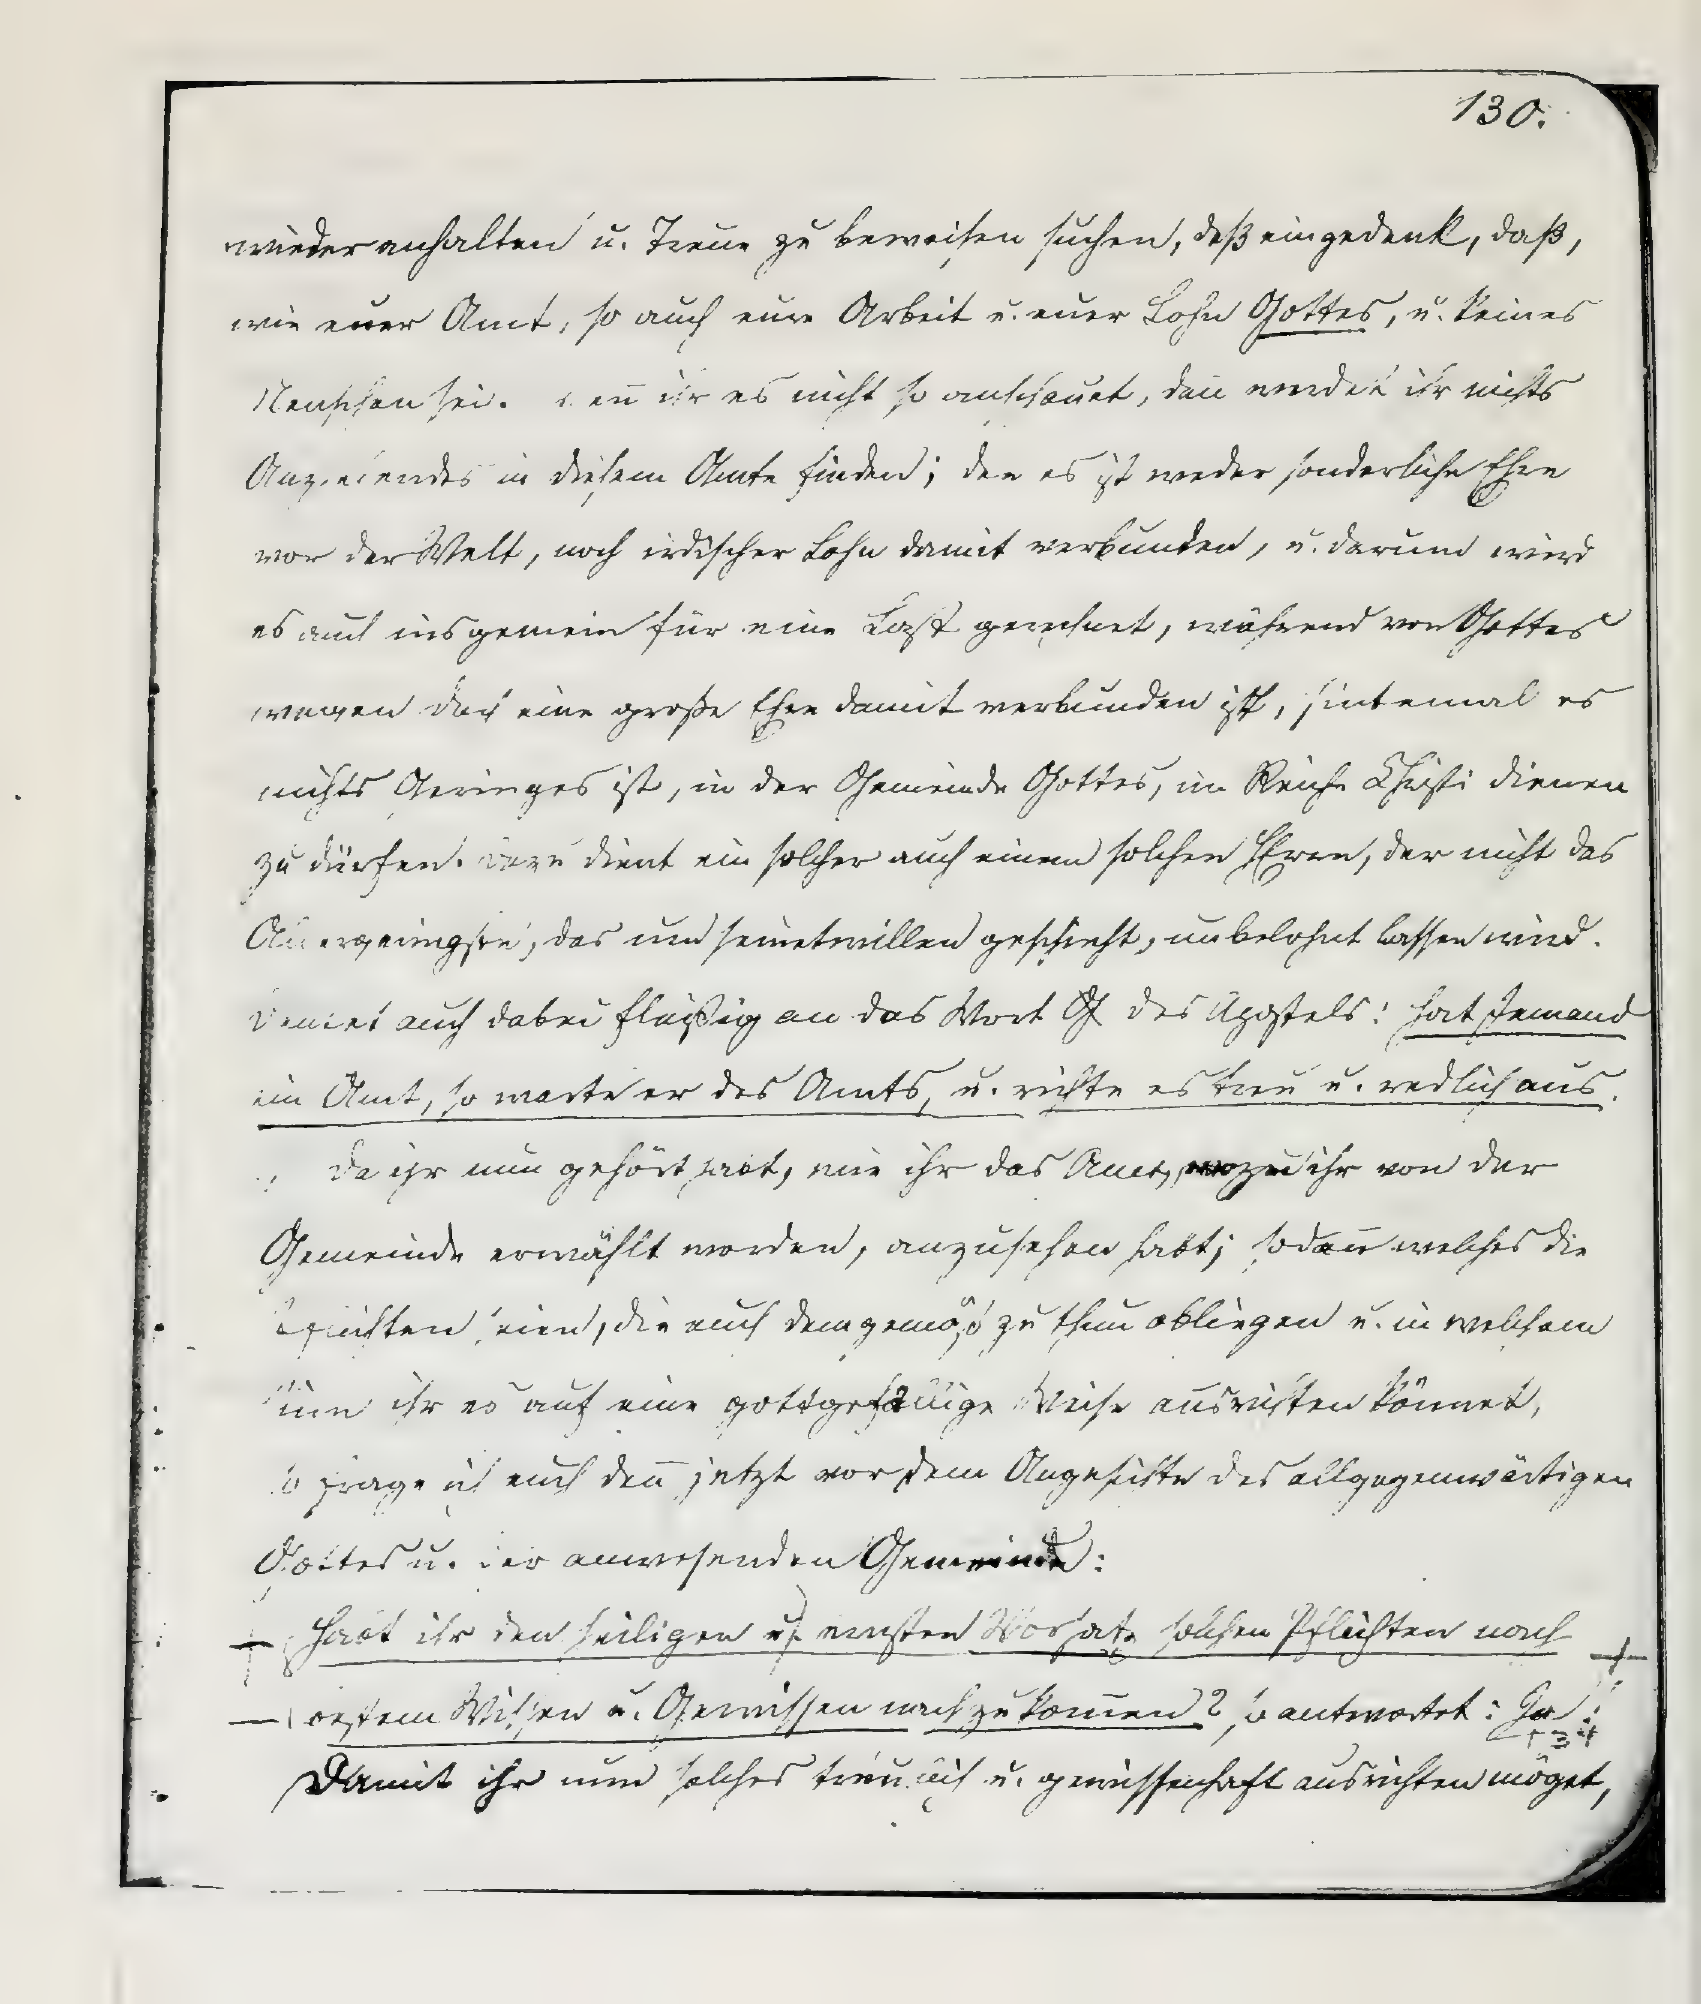 130.
wieder anhalten u. Treue zu beweisen suchen, deß eingedenk, daß,
wie euer Amt, so auch eure Arbeit u. euer Lohn Gottes, u. keines
Menschen sei. Wen̄ ihr es nicht so anschauet, dan̄ werdet ihr nichts
Anziehendes in diesem Amte finden; den es ist weder sonderliche Ehre
vor der Welt, noch irdischer Lohn damit verbunden, u. darum wird
es auch insgemein für eine Last gerechnet, während von Gottes
wegen doch eine große Ehre damit verbunden ist, sintemal es
nichts Geringes ist, in der Gemeinde Gottes, im Reiche Christi dienen
zu dürfen. Dazu dient ein solcher auch einem solchen Herrn, der nicht das
Allergeringste, das um seinetwillen geschieht, unbelohnt lassen wird.
Denket auch dabei fleißig an das Wort des Apostels: Hat Jemand
ein Amt, so warte er des Amts, u. richte es treu u. redlich aus.
Da ihr nun gehört habt, wie ihr das Amt, wozu ihr von der
Gemeinde erwählt worden, anzusehen habt; sodan̄ welches die
Pflichten seien, die euch demgemäß zu thun obliegen u. in welchem
Sinn ihr es auf eine gottgefällige Weise ausrichten könnet,
so frage ich euch den̄ jetzt vor dem Angesichte des allgegenwärtigen
Gottes u. der anwesenden Gemeinde:
Habt ihr den heiligen u. ernsten Vorsatz solchen Pflichten nach
bestem Wissen u. Gewissen nachzukom̄en? so antwortet: Ja!
Damit ihr nun solches treulich u. gewissenhaft ausrichten möget,